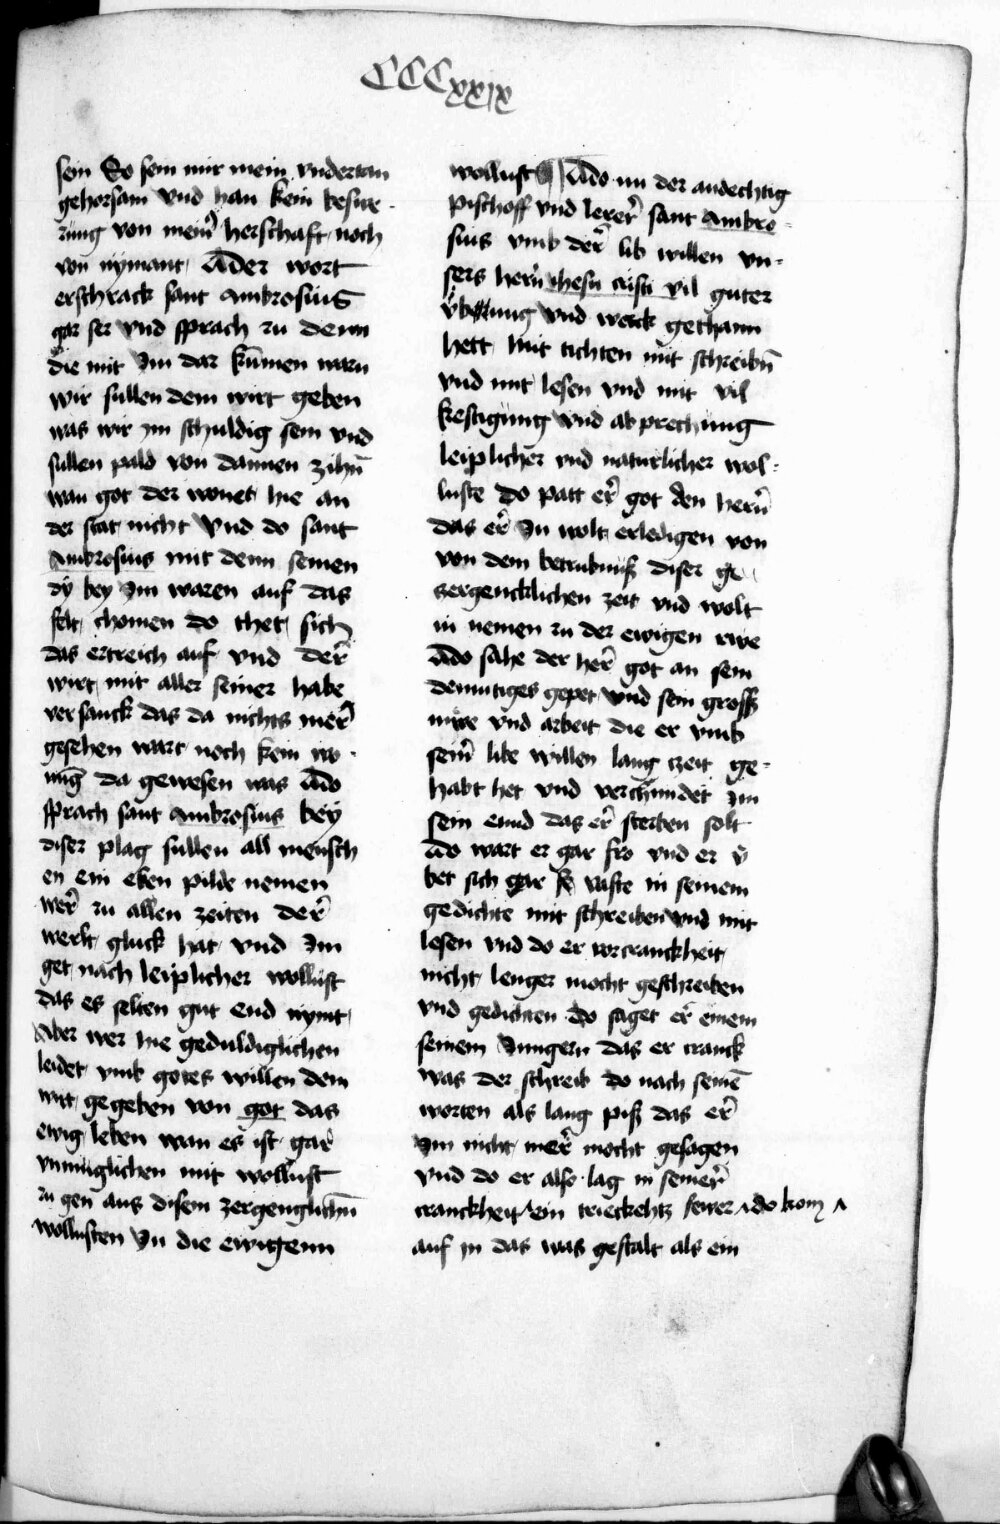 CCCxxix
sein So sein mir mein vndertan
gehorsam vnd han kein beswe-
rung von meiner herschaft noch
von nymant Der wort
erschrack sant Ambrosius
gar ser vnd sprach zu denn
die mit Im dar kumen warn
wir sullen dem wirt geben
was wir im schuldig sein vnd
sullen pald von dannen zihn
wan got der wonet hie an
der stat nicht Vnd do sant
Ambrosius mit denn seinen
dy bey Im waren auf das
felt chomen do thet sich
das ertreich auf vnd der
wirt mit aller seiner habe
versanck das da nichts mer
gesehen wart noch kein wo-
nung da gewesen was Do
sprach sant Ambrosius bey
diser plag sullen all mensch
en ein eben pilde nemen
wer zu allen zeiten der
werlt gluck hat vnd Im
get nach leiplicher wollust
das es selten gut end nymt
Aber wer hie geduldiglichen
leidet vmb gotes willen dem
wirt gegeben von got das
ewig leben wan es ist gar
vnmuglichen mit wollust
zu gen aus disem zergenglichn
wollusten In die ewigenn
wollust Do nu der andechtig
pischoff vnd lerer sant Ambro-
sius vmb der lib willen vn-
sers hern ihesu cristi vil guter
vbung vnd werck gethann
hett Mit tichten mit schreibn
vnd mit lesen vnd mit vil
kestigung vnd abprechung
leiplicher vnd naturlicher wol-
luste Do patt er got den hern
das er In wolt erledigen von
von dem betrubnuß diser ge
zergencklichen zeit vnd wolt
in nemen zu der ewigen rwe
Do sahe der her got an sein
demutiges gepet vnd sein groß
mwe vnd arbeit die er vmb
sein libe willen lang zeit ge-
habt het vnd verchundet Im
sein ennd das er sterben solt
Do wart er gar fro vnd er v
bet sich gar vaste in seinem
gedichte mit schreiben vnd mit
lesen vnd do er vor cranckheit
nicht lenger mocht geschreiben
vnd gedichten do saget er einem
seinem Jungern das er cranck
was der schreib do nach seinen
worten als lang piß das er
Im nicht mer mocht gesagen
vnd do er also lag in seiner
cranckheit ein fewer do kom
auf in das was gestalt als ein